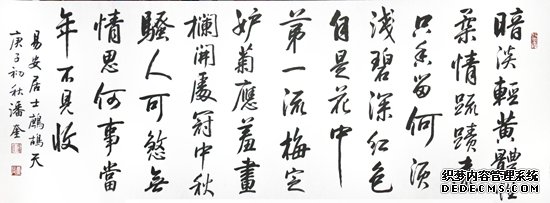 暗淡輕黃體性
柔情疏蹟遠
只香留何須
淺碧深紅色
自是花中
第一流梅定
妒菊應羞畫
欄開處冠中秋
騷人可煞無
情思何事當
年不見收
易安居士鷓鴣天
庚子初秋潘奎
织梦内容管理系统
DEDECMS.COM